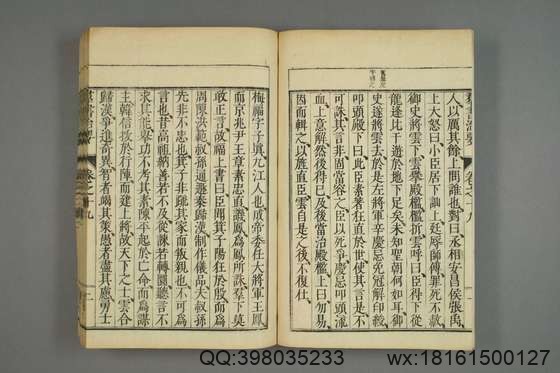 群書治要 卷之十九
人以厲其餘上問誰也對曰丞相安昌侯張禹
上大怒曰小臣居下訕上廷辱師傅罪死不赦
御史將雲下雲攀殿檻檻折雲呼曰臣得下從
龍逢比干遊於地下足矣未知聖朝何如耳御
史遂將雲去於是左將軍辛慶忌免冠解印綬
叩頭殿下曰此臣素著狂直於世使其言是不
可誅其言非固當容之臣以死爭慶忌叩頭流
血上意解然後得已及後當治殿檻上曰勿易
因而輯之以旌直臣雲自是之後不復仕
梅福字子眞九江人也成帝委任大將軍王鳳
而京兆尹王章素忠直譏鳳爲鳳所誅羣下莫
敢正言故福上書曰臣聞箕子陽狂於殷而爲
周陳洪範叔孫通遁秦歸漢制作儀品夫叔孫
先非不忠也箕子非疏其家而叛親也不可爲
言也昔高祖納善若不及從諫若轉圜聽言不
求其能舉功不考其素陳平起於亡命而爲謀
主韓信拔於行陳而建上將故天下之士雲合
歸漢爭進奇異智者竭其策愚者盡其慮勇士
群書治要 卷之十九
QQ:398035233 wx:18161500127